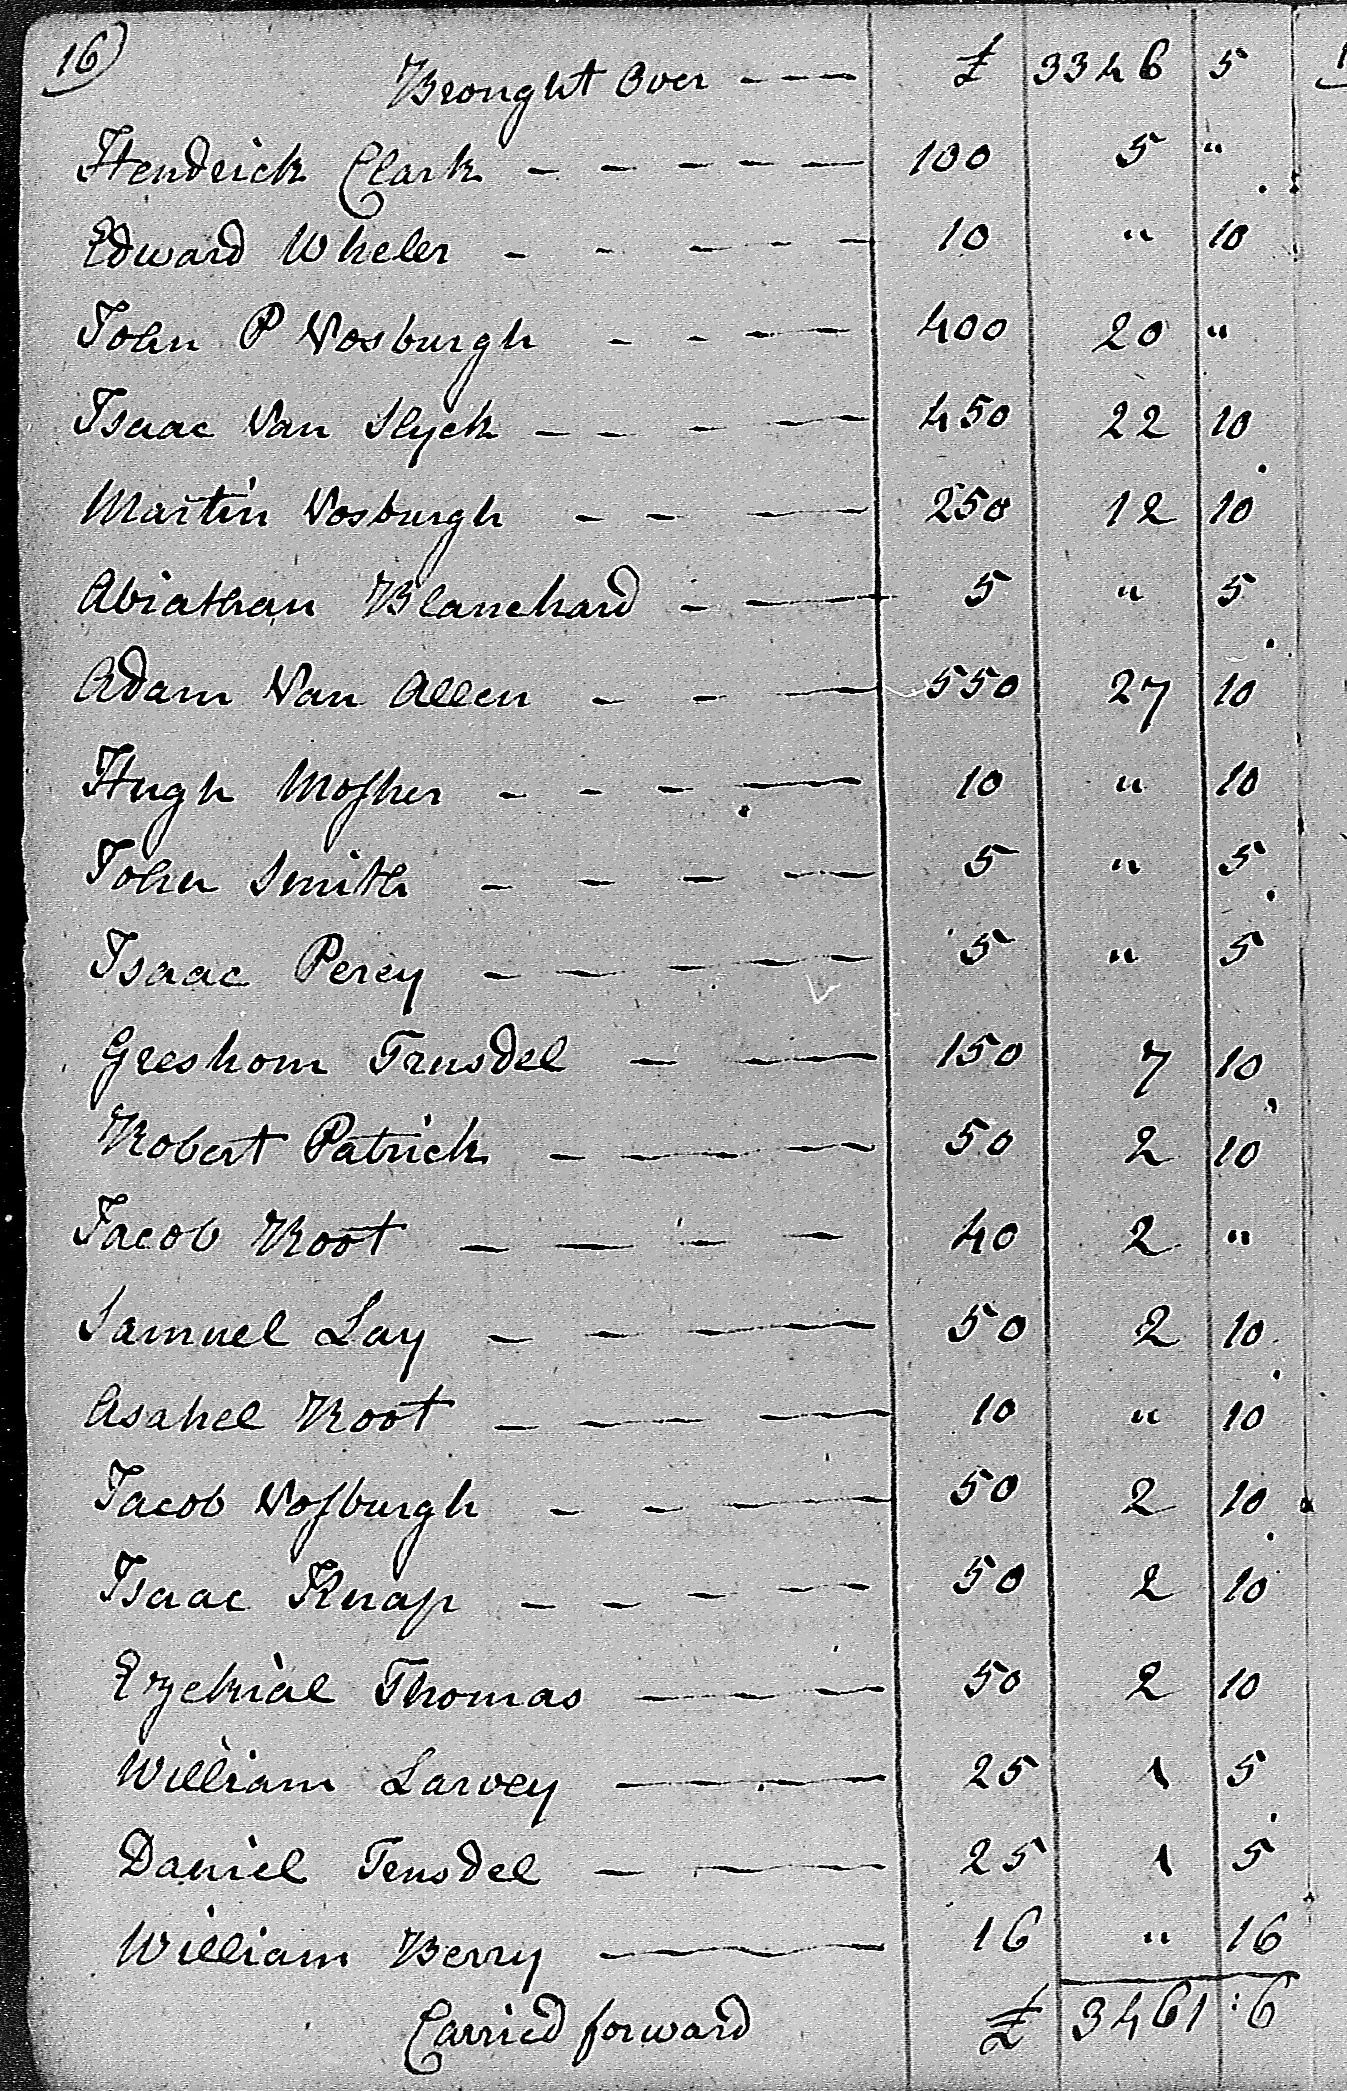 16)
Brought Over - - - £ 3346 5
Hendrick Clark - - - - - 100 5 "
Edward Wheler - - - - - 10 " 10
John P Vosburgh - - - - 400 20 "
Isaac Van Slyck - - - - 450 22 10
Martin Vosburgh - - - 250 12 10
Abiathan Blanchard - - 5 " 5
Adam Van Allen - - - 550 27 10
Hugh Mosher - - - - 10 " 10
John Smith - - - - 5 " 5
Isaac Percy - - - - - 5 " 5
Greshom Trusdel - - 150 7 10
Robert Patrick - - - 50 2 10
Jacob Root - - - - 40 2 "
Samuel Lay - - - - 50 2 10
Asahel Root - - - 10 " 10
Jacob Vosburgh - - - 50 2 10
Isaac Knap - - - - 50 2 10
Ezekial Thomas - - - 50 2 10
William Larvey - - - 25 1 5
Daniel Trusdel - - - 25 1 5
William Berry - - - 16 " 16
Carried forward £ 3461 : 6